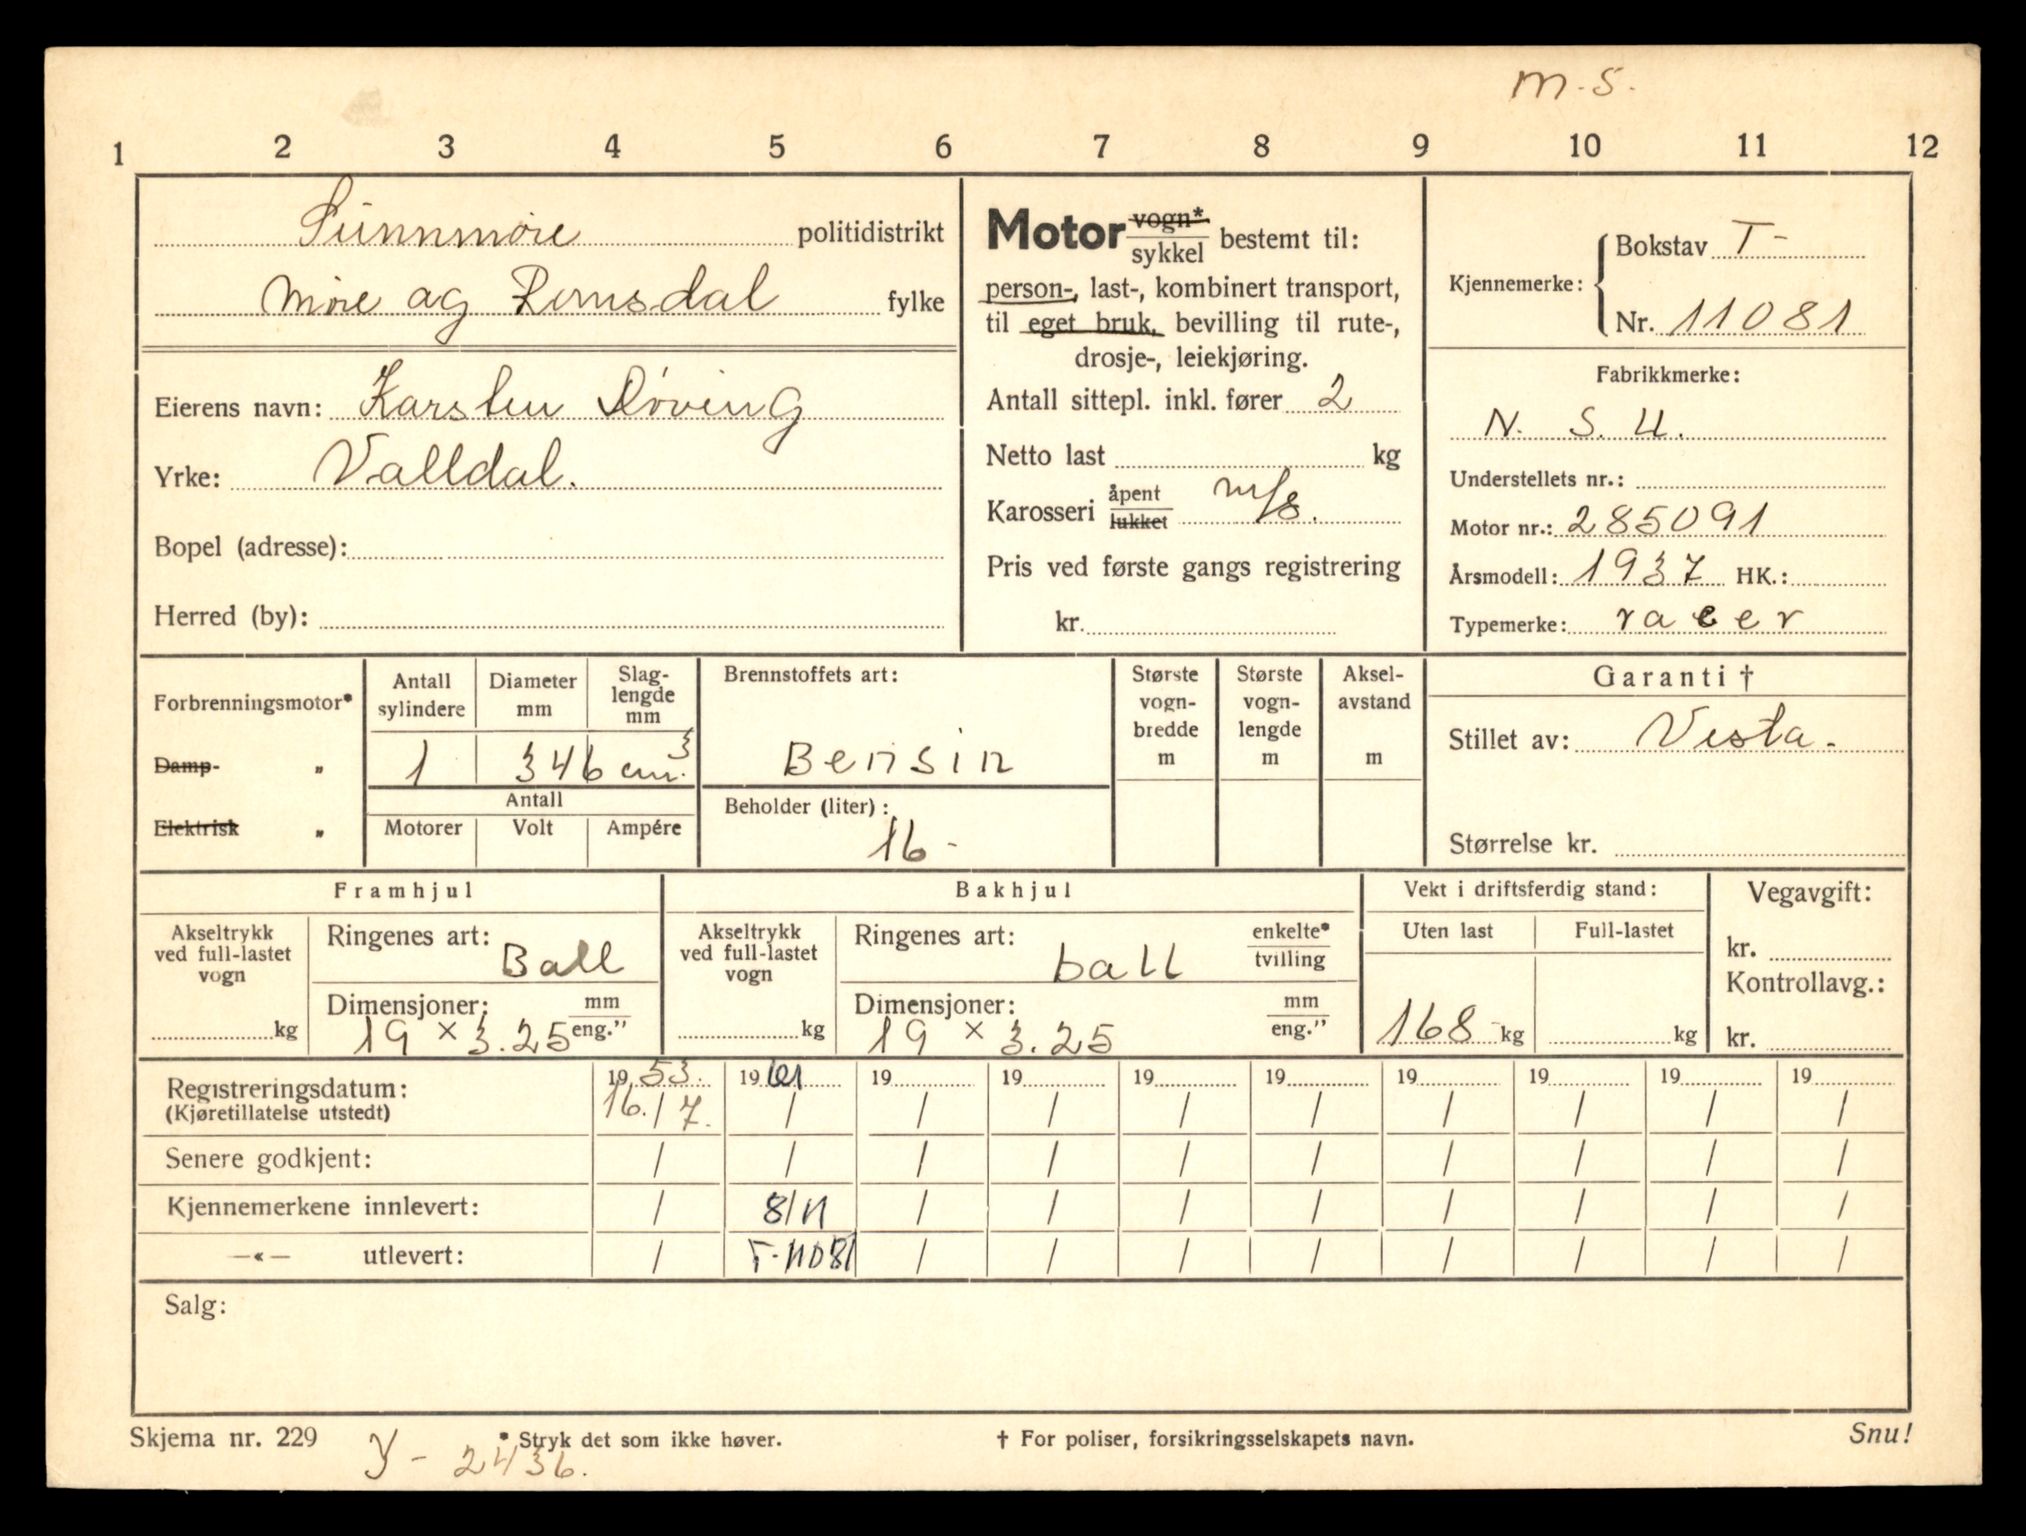 m.s.
1 2 3 4 5 6 7 8 9 10 11 12
Sunnmøre politidistrikt
Møre og Romsdal fylke
Eierens navn: Karsten Døving
Yrke: Valldal.
Bopel (adresse):
Herred (by):
Motor vogn* / sykkel bestemt til:
person-, last-, kombinert transport,
til eget bruk, bevilling til rute-,
drosje-, leiekjøring.
Antall sittepl. inkl. fører 2
Netto last kg
Karosseri åpent / lukket m/s.
Pris ved første gangs registrering
kr.
Kjennemerke: Bokstav T-
Nr. 11081
Fabrikkmerke:
N. S. U.
Understellets nr.:
Motor nr.: 285091
Årsmodell: 1937 HK.:
Typemerke: racer
Forbrenningsmotor*
Damp- „
Elektrisk „
Antall sylindere
Diameter mm
Slag-lengde mm
1 346 cm.3
Antall
Motorer Volt Ampére
Brennstoffets art:
Bensin
Beholder (liter):
16-
Største vogn-bredde m
Største vogn-lengde m
Aksel-avstand m
Garanti †
Stillet av: Vesta.
Størrelse kr.
Framhjul
Akseltrykk ved full-lastet vogn
kg
Ringenes art:
Ball
Dimensjoner: mm / eng.”
19 × 3.25
Bakhjul
Akseltrykk ved full-lastet vogn
kg
Ringenes art: enkelte* / tvilling
ball
Dimensjoner: mm / eng.”
19 × 3.25
Vekt i driftsferdig stand:
Uten last Full-lastet
168 kg kg
Vegavgift:
kr.
Kontrollavg.:
kr.
Registreringsdatum: 1953. 1961 19 19 19 19 19 19 19 19
(Kjøretillatelse utstedt) 16./7. / / / / / / / / /
Senere godkjent: / / / / / / / / / /
Kjennemerkene innlevert: / 8/11 / / / / / / / /
—«— utlevert: / T-11081 / / / / / / / /
Salg:
Skjema nr. 229 * Stryk det som ikke høver. † For poliser, forsikringsselskapets navn. Snu!
Y - 2436.